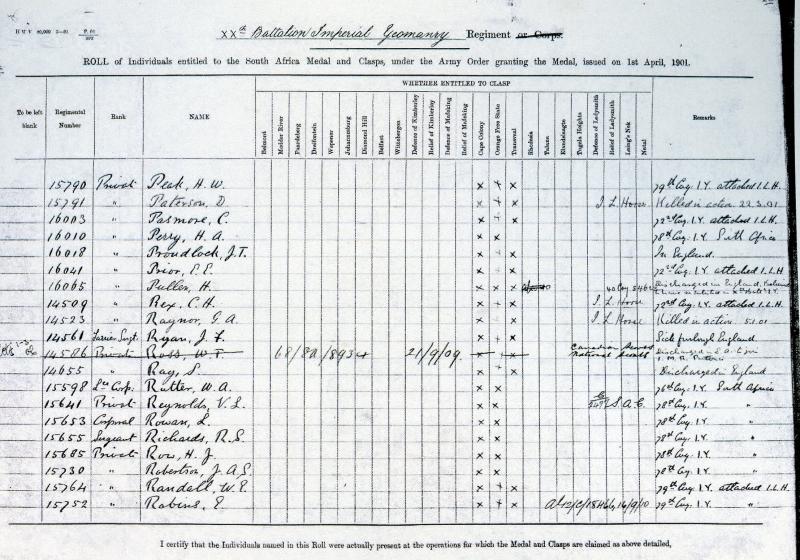 XXth Battalion Imperial Yeomanry Regiment or Corps.
ROLL of Individuals entitled to the South Africa Medal and Clasps, under the Army Order granting the Medal, issued on 1st April, 1901.
WHETHER ENTITLED TO CLASP
To be left blank Regimental Number Rank NAME Belmont Modder River Paardeberg Driefontein Wepener Johannesburg Diamond Hill Belfast Wittebergen Defence of Kimberley Relief of Kimberley Defence of Mafeking Relief of Mafeking Cape Colony Orange Free State Transvaal Rhodesia Talana Elandslaagte Tugela Heights Defence of Ladysmith Relief of Ladysmith Laing's Nek Natal Remarks
15790 Private Peak, H. W. x x x 79th Coy. I.Y. attached I.L.H.
15791 " Paterson, D x x x I L Horse Killed in action 22.3.01
16003 " Pasmore, C. x x x 72nd Coy. I.Y. attached I.L.H.
16010 " Perry, H. A. x x 78th Coy. I.Y. South Africa
16018 " Proudlock, J.T. x x x In England.
16041 " Prior, E.E. x x x 72nd Coy. I.Y. attached I.L.H
16065 " Pullen, H. x x x Discharged in England,
14509 " Rex, C. H. x x x I. L. Horse 72nd Coy. I.Y. attached I.L.H.
14523 " Raynor, G. A. x x x I L Horse Killed in action 5.1.01
14561 Farrier Sergt. Ryan, J. F. x x x Sick furlough England
14586 Private Ross, W. F. 68/Sa/8934 21/9/09. x x x Canadian Scouts National Scouts
14655 " Ray, S. x x x Discharged in England
15598 Lce Corp. Rutter, W. A. x x 76th Coy. I.Y. South Africa
15641 Private Reynolds, V. L. x x S. A. C. 78th Coy. I.Y. "
15653 Corporal Rowan, L. x x 78th Coy. I.Y. "
15655 Sergeant Richards, R. S. x x 78th Coy. I.Y. "
15685 Private Row, H. J. x x 78th Coy. I.Y. "
15730 " Robertson, J. A. S. x x 78th Coy. I.Y. "
15764 " Randall, W. E. x x x 79th Coy. I.Y. attached I.L.H.
15752 " Robins, E. x x x 79th Coy. I.Y. "
I certify that the Individuals named in this Roll were actually present at the operations for which the Medal and Clasps are claimed as above detailed,